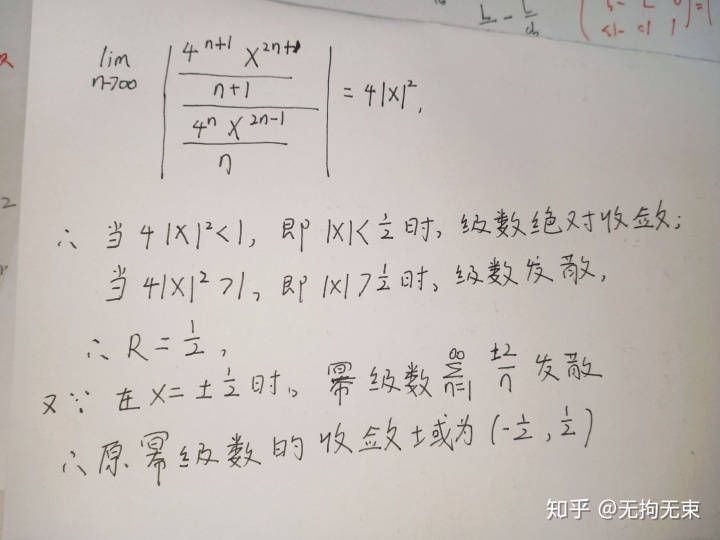 lim n→∞ | (4^{n+1} x^{2n+1} / (n+1)) / (4^n x^{2n-1} / n) | = 4|x|²,
∴ 当 4|x|²<1, 即 |x|<1/2 时, 级数绝对收敛;
当 4|x|²>1, 即 |x|>1/2 时, 级数发散,
∴ R = 1/2,
又∵ 在 x = ±1/2 时, 幂级数 ∑_{n=1}^{∞} ±2/n 发散
∴ 原幂级数的收敛域为 (-1/2, 1/2)
知乎 @无拘无束